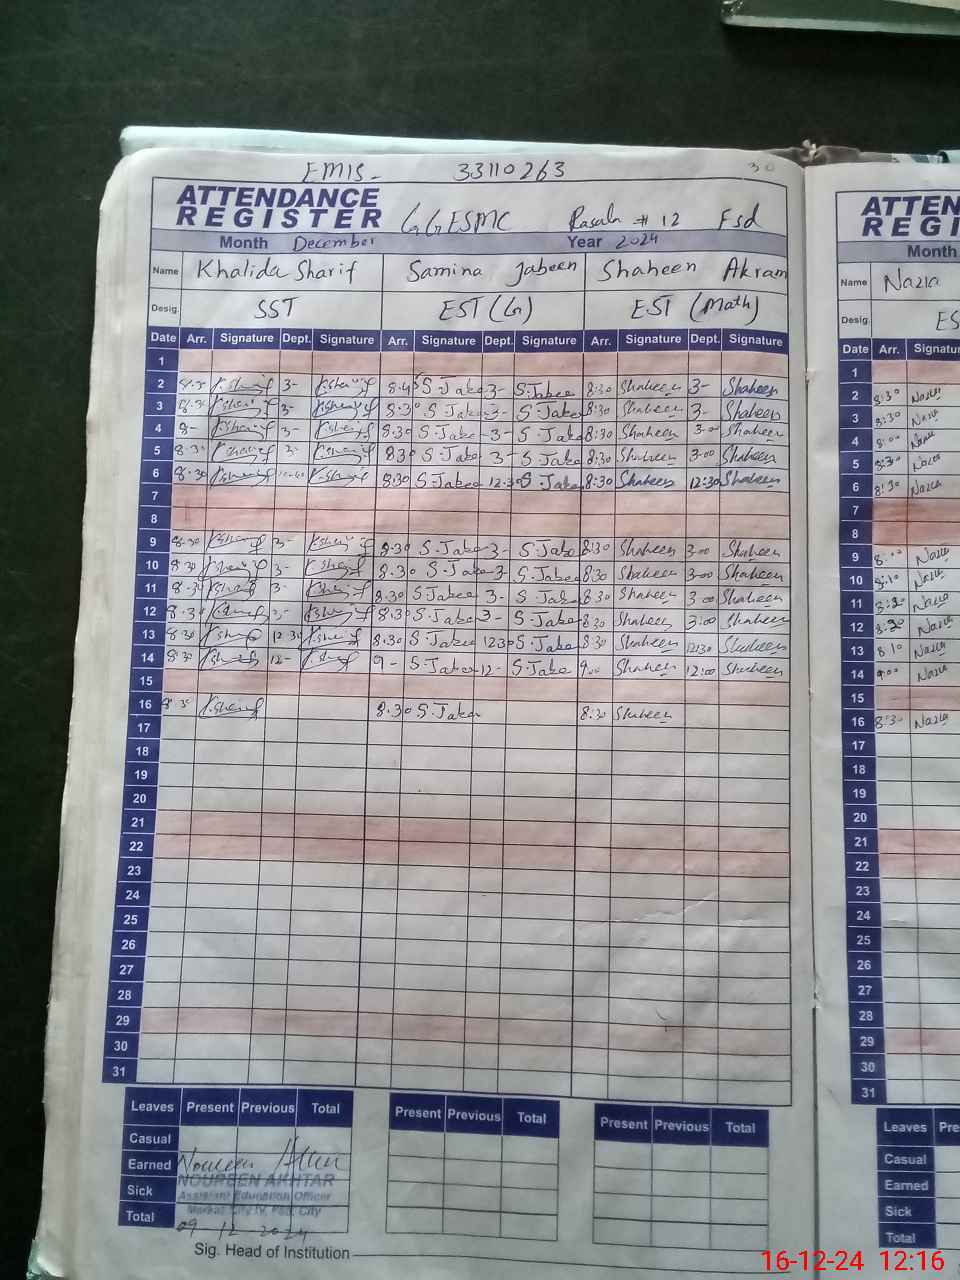 EMIS- 33110263 30
ATTENDANCE REGISTER GGESMC Rasala # 12 Fsd
Month December Year 2024
Name Khalida Sharif Samina Jabeen Shaheen Akram
Desig. SST EST (G) EST (Math)
Date Arr. Signature Dept. Signature Arr. Signature Dept. Signature Arr. Signature Dept. Signature
1
2 8:3 K.Sharif 3- K.Sharif 8:45 S.Jabee 3- S.Jabee 8:30 Shaheen 3- Shaheen
3 8:3 K.Sharif 3- K.Sharif 8:30 S Jabee 3- S Jabee 8:30 Shaheen 3- Shaheen
4 8- K.Sharif 3- K.Sharif 8.30 S.Jabe 3- S.Jabe 8:30 Shaheen 3.00 Shaheen
5 8.3 K.Sharif 3- K.Sharif 830 S.Jabe 3- S.Jabe 8:30 Shaheen 3-00 Shaheen
6 8.30 K.Sharif K.Sharif 8:30 S.Jabee 12:30 S.Jabee 8:30 Shaheen 12:30 Shaheen
7
8
9 8.30 K.Sharif 3- K.Sharif 8.30 S.Jabe 3- S.Jabe 8:30 Shaheen 3-00 Shaheen
10 8.30 K.Sharif 3- K.Sharif 8.30 S.Jabe 3- S.Jabee 8:30 Shaheen 3-00 Shaheen
11 8.30 K.Sharif 3- K.Sharif 8.30 S.Jabee 3- S.Jabe 8:30 Shaheen 3 00 Shaheen
12 8.30 K.Sharif 3- K.Sharif 8.30 S.Jabee 3- S.Jabe 8:30 Shaheen 3:00 Shaheen
13 8.30 K.Sharif 12.30 K.Sharif 8.30 S.Jabee 1230 S.Jabee 8:30 Shaheen 12:30 Shaheen
14 8.30 K.Sharif 12- K.Sharif 9- S.Jabee 12- S.Jabee 9.00 Shaheen 12:00 Shaheen
15
16 8.3 K.Sharif 8.30 S.Jabee 8:30 Shaheen
17
18
19
20
21
22
23
24
25
26
27
28
29
30
31
Leaves Present Previous Total Present Previous Total Present Previous Total
Casual
Earned Noureen
NOUREEN AKHTAR
Sick Assistant Education Officer
Markaz City IV, Fsd. City
Total 09 12 2024
Sig. Head of Institution
ATTEN
REGI
Month
Name Nazia
Desig. ES
Date Arr. Signatur
1
2 8:30 Nazia
3 8:30 Nazia
4 8:00 Nazia
5 8:30 Nazia
6 8:30 Nazia
7
8
9 8:00 Nazia
10 8:10 Nazia
11 8:20 Nazia
12 8:20 Nazia
13 8:10 Nazia
14 9:00 Nazia
15
16 8:30 Nazia
17
18
19
20
21
22
23
24
25
26
27
28
29
30
31
Leaves Pre
Casual
Earned
Sick
Total
16-12-24 12:16